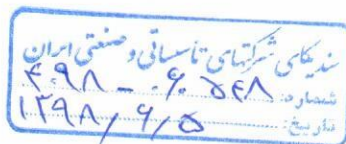 سندیکای شرکتهای تأسیساتی و صنعتی ایران
شماره: ۴۹۸ - ۰۶ ۵۴۸
تاریخ: ۱۳۹۸/۶/۵